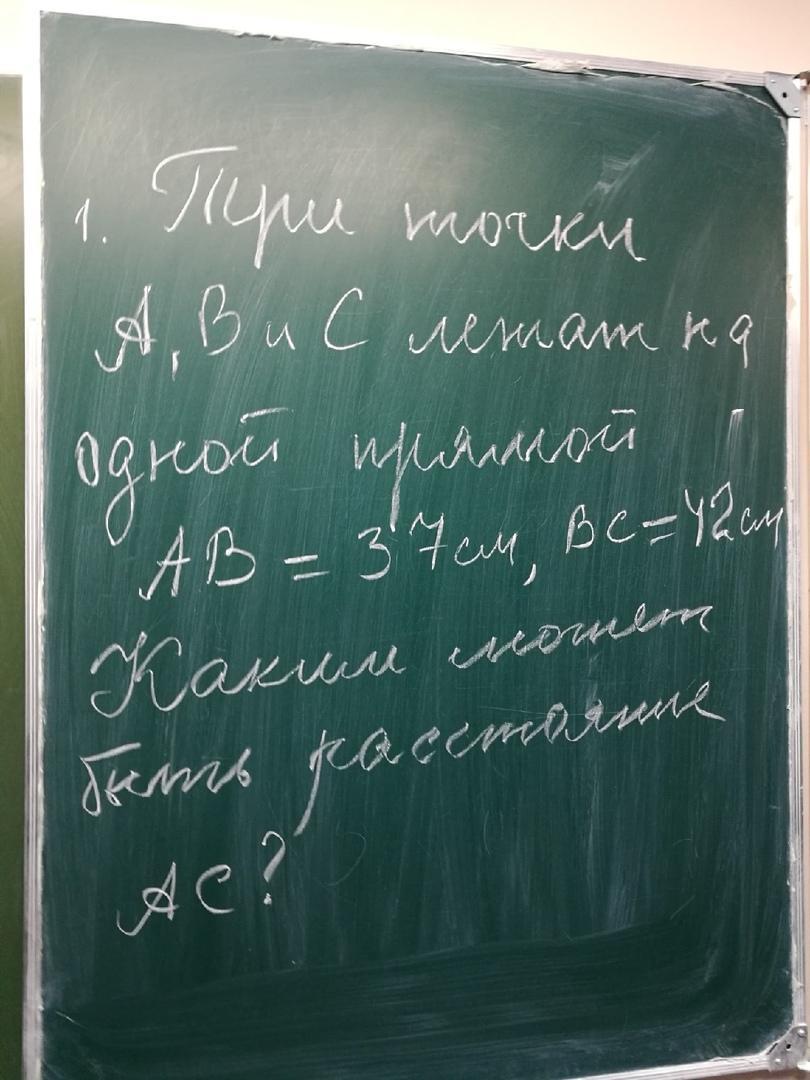 1. Три точки
А, В и С лежат на
одной прямой
АВ = 37см, ВС=42см
Каким может
быть расстояние
АС?